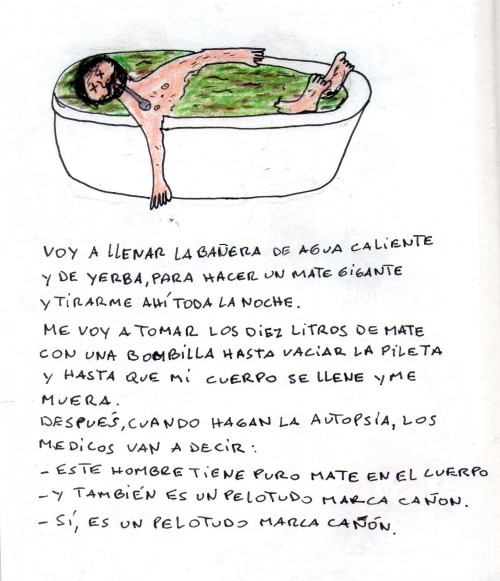 VOY A LLENAR LA BAÑERA DE AGUA CALIENTE
Y DE YERBA, PARA HACER UN MATE GIGANTE
Y TIRARME AHÍ TODA LA NOCHE.
ME VOY A TOMAR LOS DIEZ LITROS DE MATE
CON UNA BOMBILLA HASTA VACIAR LA PILETA
Y HASTA QUE MI CUERPO SE LLENE Y ME
MUERA.
DESPUÉS, CUANDO HAGAN LA AUTOPSÍA, LOS
MEDICOS VAN A DECIR:
- ESTE HOMBRE TIENE PURO MATE EN EL CUERPO
- Y TAMBIÉN ES UN PELOTUDO MARCA CAÑON.
- SÍ, ES UN PELOTUDO MARCA CAÑÓN.